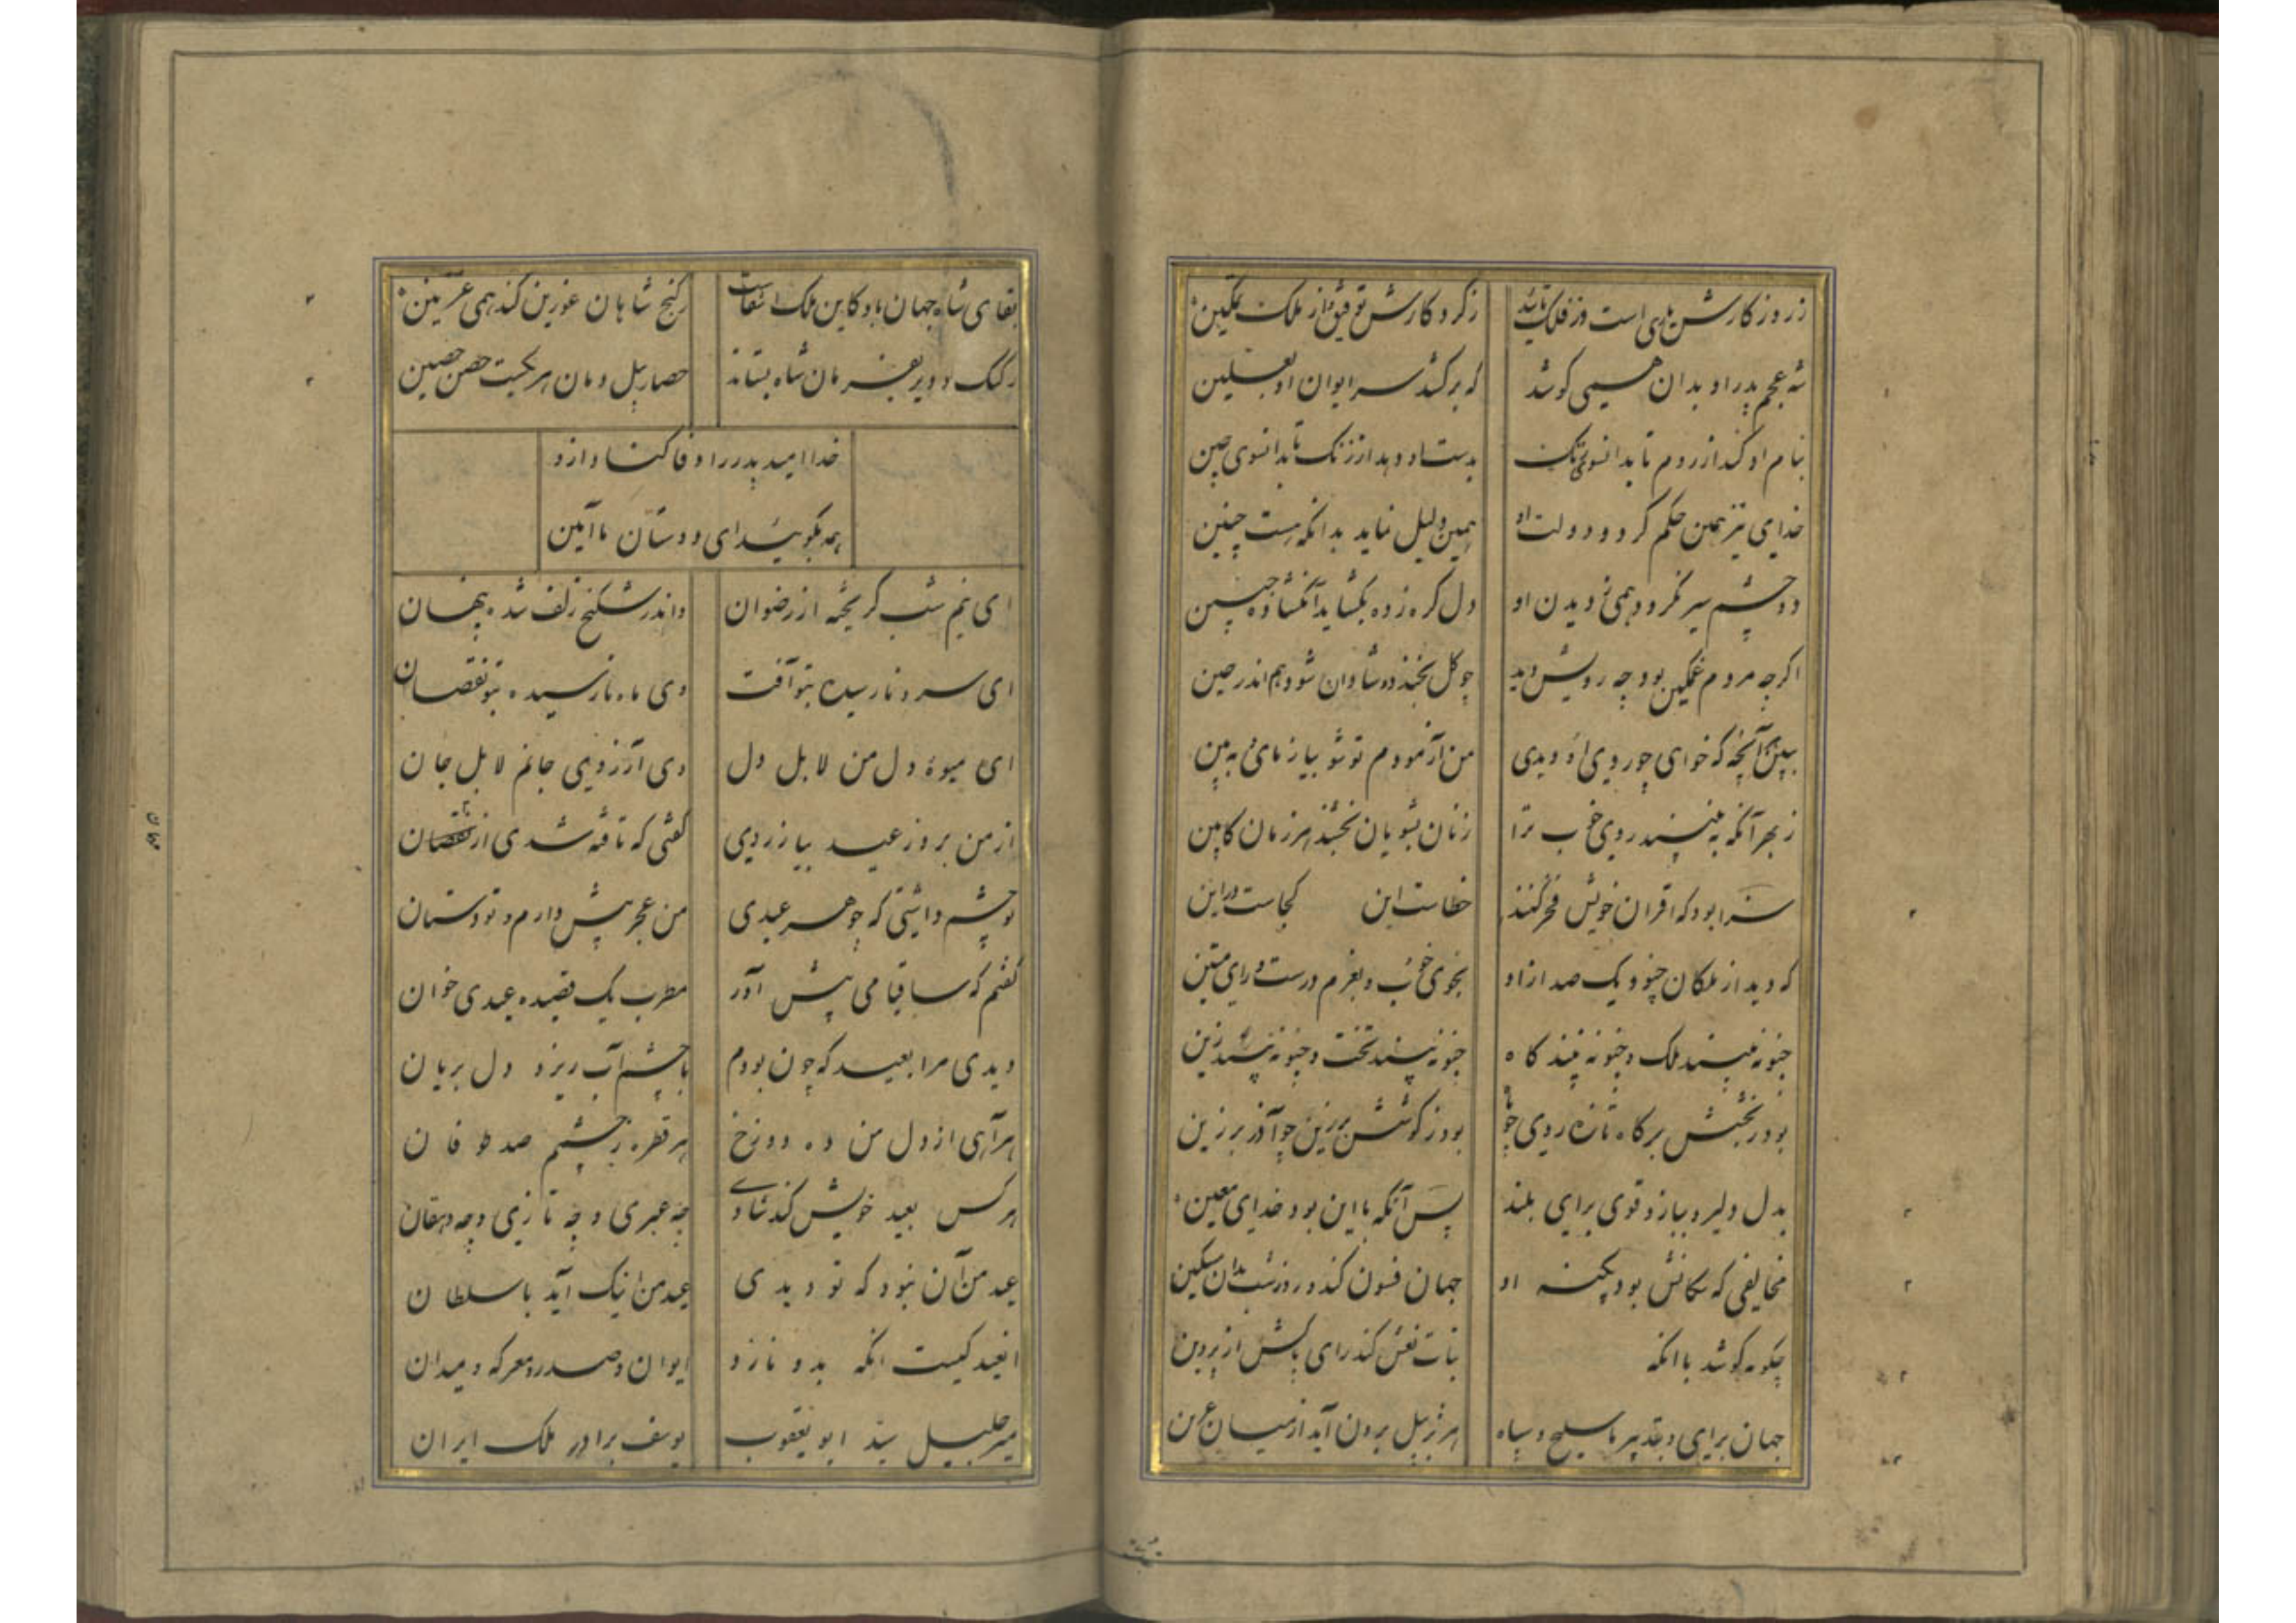 ز روزگارش یاری است وز فلک تائید
ز کردگارش توفیق و از ملک تمکین
شه عجم پدر او بدان همی کوشد
که برکشد سر ایوان او بعلیین
بنام او کند از روم تا بدانسوی تنک
بدست او دهد از زنک تا بدانسوی چین
خدای نیز همین حکم کرد و دولت او
همین دلیل نماید بدانکه هست چنین
دو چشم سیر نکردد همی ز دیدن او
دل کره زده بکشاید آن کشاده جبین
اکر چه مردم غمکین بود چه رویش دید
چو کل بخندد و شادان شود هم اندر حین
ببینی آنچه که خواهی چو روی او دیدی
من آزمودم تو شو بیازمای به بین
ز بهر آنکه به بینند روی خوب ترا
زنان بشویان بخشند هر زمان کابین
سزا بود که اقران خویش فخر کنند
خطاست این کجاست در این
که دید از ملکان چنو و یک صد از او
بخوی خوب و بعزم درست و رای متین
چنو نه بیند ملک و چنو نه بیند کاه
چنو نه بیند تخت و چنو نه بیند زین
بود ز بخشش بر کاه تازه روی چو
بود ز کوشش بر زین چو آذر برزین
بدل دلیر و ببازو قوی برای بلند
پس آنکه با این بود خدای معین
مخالفی که سکالش بود بکینه او
جهان فسون کند و روز شب بدان سکین
چکونه کوشد با انکه
بنات نعش کند رای باکش از پروین
جهان برای و بتدبیر با سلیح و سپاه
هژبر بیل برون آید از میان عرین
بقای شاه جهان باد کاین ملک را بقاست
ز کنج شاهان غزنین کند همی غزنین
ز کنک و دویر بفرمان شاه بستاند
حصار بیل دمان هر یکیست حصن حصین
خدا امید پدر را وفا کناد ازو
همه بکوئید ای دوستان ما آمین
ای نیم شب کریخته از رضوان
واندر شکنج زلف شده پنهان
ای سرو نارسیده بتو آفت
وی ماه نارسیده بتو نقصان
ای میوهٔ دل من لا بل دل
وی آرزوی جانم لا بل جان
از من بروز عید بیازردی
کفتی که تافته شدی از
تو چشم داشتی که چو هر عیدی
من عجز پیش دارم و تو دستان
کفتم که ساقیا می پیش آور
مطرب یک قصیده عیدی خوان
دیدی مرا بعید که چون بودم
با چشم آب ریز و دل بریان
هر آهی از دل من ده دوزخ
هر قطره ز چشم صد طوفان
هر کس بعید خویش کند شادی
چه عبری و چه تازی و چه دهقان
عید من آن نبود که تو دیدی
عید من اینک آید با سلطان
آن عید کیست انکه بدو نازد
ایوان و صدر و معرکه و میدان
میر جلیل سید ابو یعقوب
یوسف برادر ملک ایران